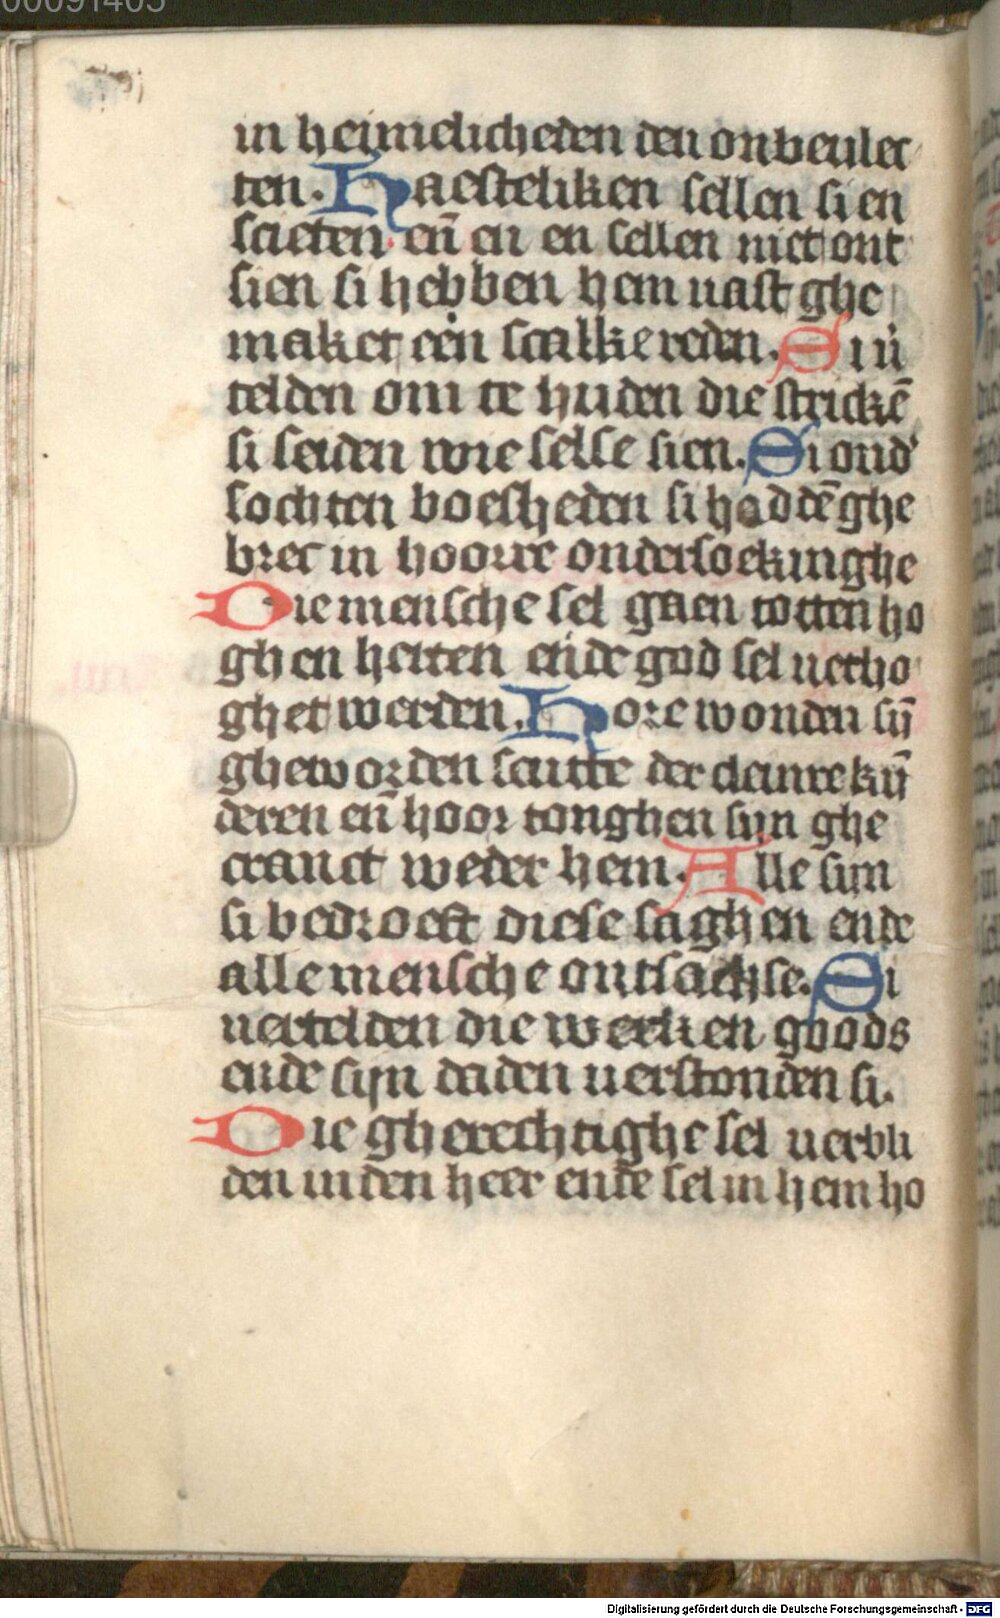 00091405
in heimelicheden den onbeulec
ten. Haesteliken sellen si en
scieten. eñ en en sellen niet ont
sien si hebben hem uast ghe
maket een scalke reden. Si u
telden om te huden die strickē
si seiden wie selse sien. Si ond'
sochten boesheden si haddē ghe
brec in hoorre ondersoekinghe
Die mensche sel gaen totten ho
ghen herten ende god sel uerho
ghet werden. Hore wonden sijn
gheworden scutte der cleinre kin
deren eñ hoor tonghen sijn ghe
cranct weder hem. Alle sijn
si bedroeft diese saghen ende
alle mensche ontsachse. Si
uertelden die werken goods
ende sijn daden uerstonden si.
Die gherechtighe sel uerbli
den in den heer ende sel in hem ho
Digitalisierung gefördert durch die Deutsche Forschungsgemeinschaft - DFG